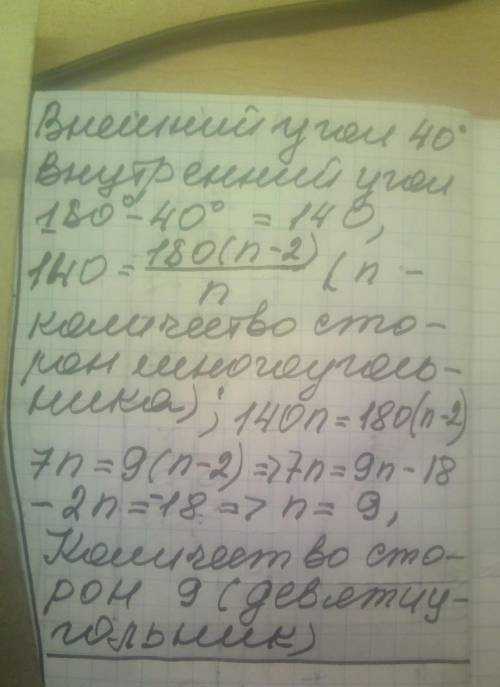 Внешний угол 40°
Внутренний угол
180° - 40° = 140,
140 = 180(n-2)/n (n -
количество сто-
рон многоуголь-
ника); 140n = 180(n-2)
7n = 9(n-2) => 7n = 9n - 18
-2n = -18 => n = 9,
Количество сто-
рон 9 (девятиу-
гольник)